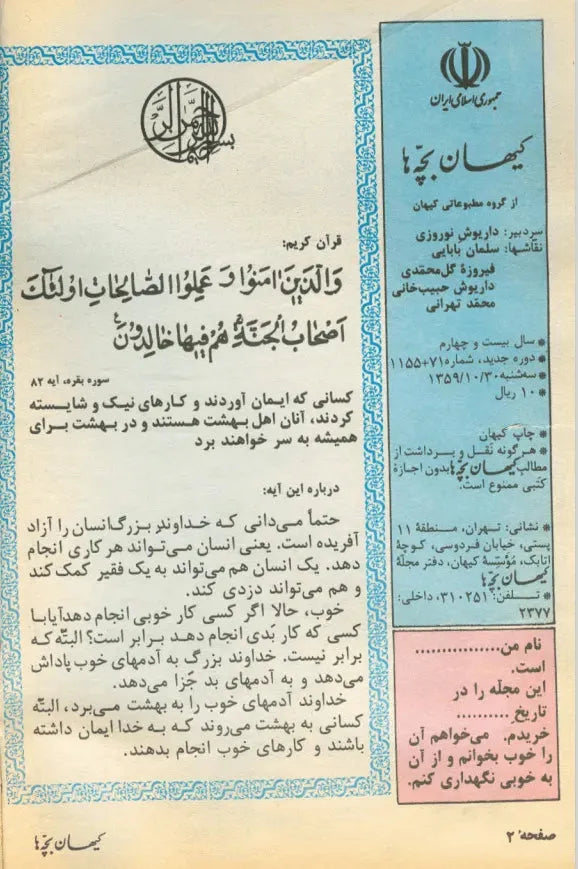 جمهوری اسلامی ایران
کیهان بچّه‌ها
از گروه مطبوعاتی کیهان
سردبیر: داریوش نوروزی
نقاشها: سلمان بابایی
فیروزهٔ گل‌محمّدی
داریوش حبیب‌خانی
محمّد تهرانی
* سال بیست و چهارم
* دوره جدید، شماره ۷۱+۱۱۵۵
* سه‌شنبه ۱۳۵۹/۱۰/۳۰
* ۱۰ ریال
* چاپ کیهان
* هرگونه نقل و برداشت از
مطالب کیهان بچّه‌ها بدون اجازهٔ
کتبی ممنوع است.
* نشانی: تهران، منطقهٔ ۱۱
پستی، خیابان فردوسی، کوچهٔ
اتابک، مؤسّسهٔ کیهان، دفتر مجلّهٔ
کیهان بچّه‌ها
* تلفن: ۳۱۰۲۵۱، داخلی:
۲۳۷۷
نام من................
است.
این مجلّه را در
تاریخ ..........
خریدم. می‌خواهم آن
را خوب بخوانم و از آن
به خوبی نگهداری کنم.
بسم الله الرحمن الرحیم
قرآن کریم:
وَالَّذینَ امَنوُا وَ عَمِلوُا الصّالِحاتِ اوُلئكَ
اَصْحابُ الْجَنَّةِ هُمْ فیها خالِدوُنَ
سوره بقره، آیه ۸۲
کسانی که ایمان آوردند و کارهای نیک و شایسته
کردند، آنان اهل بهشت هستند و در بهشت برای
همیشه به سر خواهند برد
درباره این آیه:
حتماً می‌دانی که خداوند بزرگ انسان را آزاد
آفریده است. یعنی انسان می‌تواند هر کاری انجام
دهد. یک انسان هم می‌تواند به یک فقیر کمک کند
و هم می‌تواند دزدی کند.
خوب، حالا اگر کسی کار خوبی انجام دهد آیا با
کسی که کار بَدی انجام دهد برابر است؟ البتّه که
برابر نیست. خداوند بزرگ به آدمهای خوب پاداش
می‌دهد و به آدمهای بد جَزا می‌دهد.
خداوند آدمهای خوب را به بهشت می‌برد، البتّه
کسانی به بهشت می‌روند که به خدا ایمان داشته
باشند و کارهای خوب انجام بدهند.
صفحه ۲
کیهان بچّه‌ها